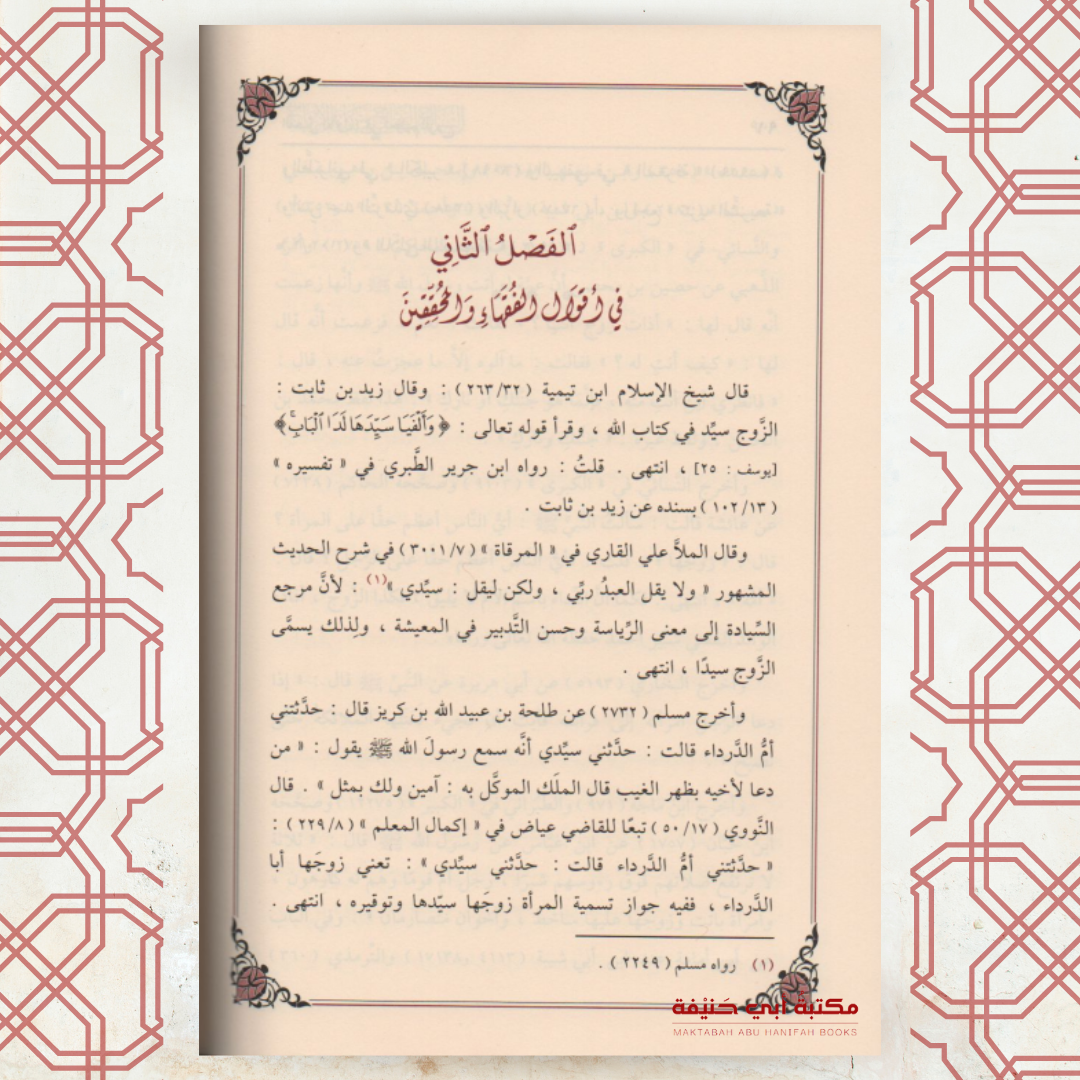 الفَصْلُ الثَّانِي
فِي أَقْوَالِ الفُقَهَاءِ وَالمُحَقِّقِينَ
قال شيخ الإسلام ابن تيمية ( ٢٦٣/٣٢ ) : وقال زيد بن ثابت :
الزَّوج سيِّد في كتاب الله ، وقرأ قوله تعالى : ﴿ وَأَلْفَيَا سَيِّدَهَا لَدَا الْبَابِ ﴾
[يوسف : ٢٥] ، انتهى . قلتُ : رواه ابن جرير الطَّبري في « تفسيره »
( ١٠٢/١٣ ) بسنده عن زيد بن ثابت .
وقال الملاَّ علي القاري في « المرقاة » ( ٣٠٠١/٧ ) في شرح الحديث
المشهور « ولا يقل العبدُ ربِّي ، ولكن ليقل : سيِّدي »(١) : لأنَّ مرجع
السِّيادة إلى معنى الرِّياسة وحسن التَّدبير في المعيشة ، ولِذلك يسمَّى
الزَّوج سيدًا ، انتهى .
وأخرج مسلم ( ٢٧٣٢ ) عن طلحة بن عبيد الله بن كريز قال : حدَّثتني
أمُّ الدَّرداء قالت : حدَّثني سيِّدي أنَّه سمع رسولَ الله ﷺ يقول : « من
دعا لأخيه بظهر الغيب قال الملَك الموكَّل به : آمين ولك بمثل » . قال
النَّووي ( ٥٠/١٧ ) تبعًا للقاضي عياض في « إكمال المعلم » ( ٢٢٩/٨ ) :
« حدَّثتني أمُّ الدَّرداء قالت : حدَّثني سيِّدي » : تعني زوجَها أبا
الدَّرداء ، ففيه جواز تسمية المرأة زوجَها سيّدها وتوقيره ، انتهى .
(١) رواه مسلم ( ٢٢٤٩ ) .
مكتبة أبي حَنِيْفة
MAKTABAH ABU HANIFAH BOOKS